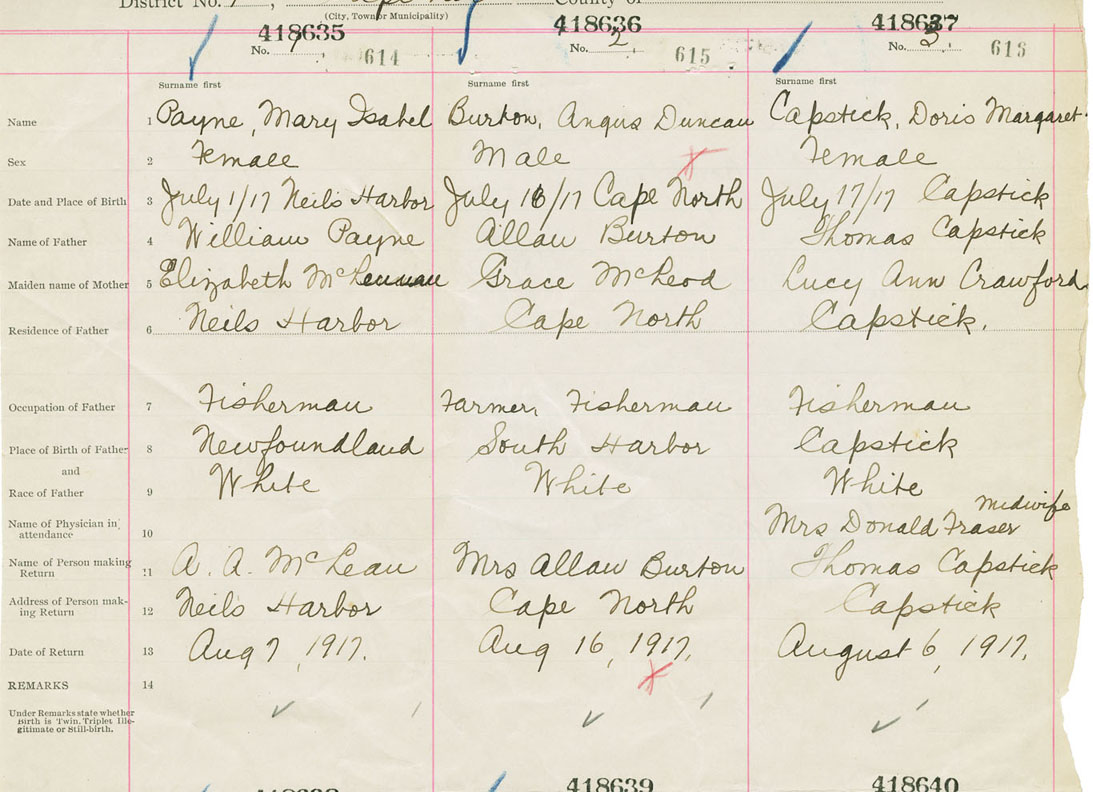 District No. 7, County of
(City, Town or Municipality)
418635 418636 418637
No. 1 614 No. 2 615 No. 3 616
Surname first Surname first Surname first
Name 1 Payne, Mary Isabel Burton, Angus Duncan Capstick, Doris Margaret
Sex 2 Female Male Female
Date and Place of Birth 3 July 1/17 Neils Harbor July 16/17 Cape North July 17/17 Capstick
Name of Father 4 William Payne Allan Burton Thomas Capstick
Maiden name of Mother 5 Elizabeth McLennan Grace McLeod Lucy Ann Crawford
Residence of Father 6 Neils Harbor Cape North Capstick.
Occupation of Father 7 Fisherman Farmer, Fisherman Fisherman
Place of Birth of Father 8 Newfoundland South Harbor Capstick
and
Race of Father 9 White White White
Name of Physician in attendance 10 Mrs Donald Fraser midwife
Name of Person making Return 11 A. A. McLean Mrs Allan Burton Thomas Capstick
Address of Person making Return 12 Neils Harbor Cape North Capstick
Date of Return 13 Aug 7, 1917. Aug 16, 1917. August 6, 1917.
REMARKS 14
Under Remarks state whether
Birth is Twin, Triplet Ille-
gitimate or Still-birth.
418639 418640